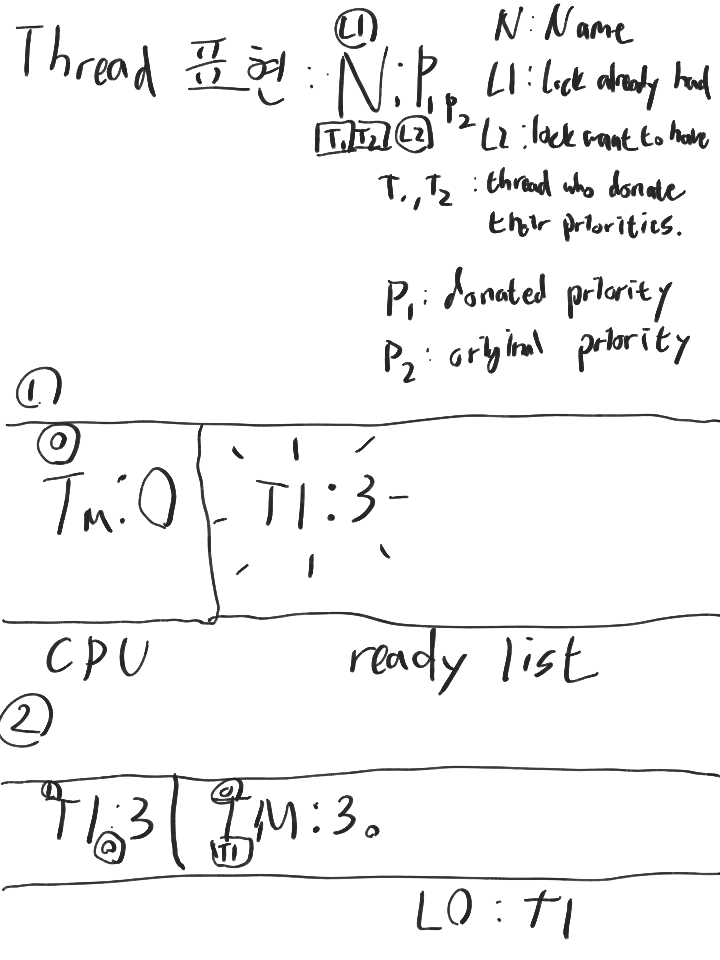 L1
Thread 표현 : N:P₁ P₂
T₁ T₂ L2
N : Name
L1 : lock already had
L2 : lock want to have
T₁, T₂ : thread who donate
their priorities.
P₁ : donated priority
P₂ : original priority
①
0
TM:0 T1:3
CPU ready list
②
1 0
T1:3 TM:3₀
0 T1
L0 : T1